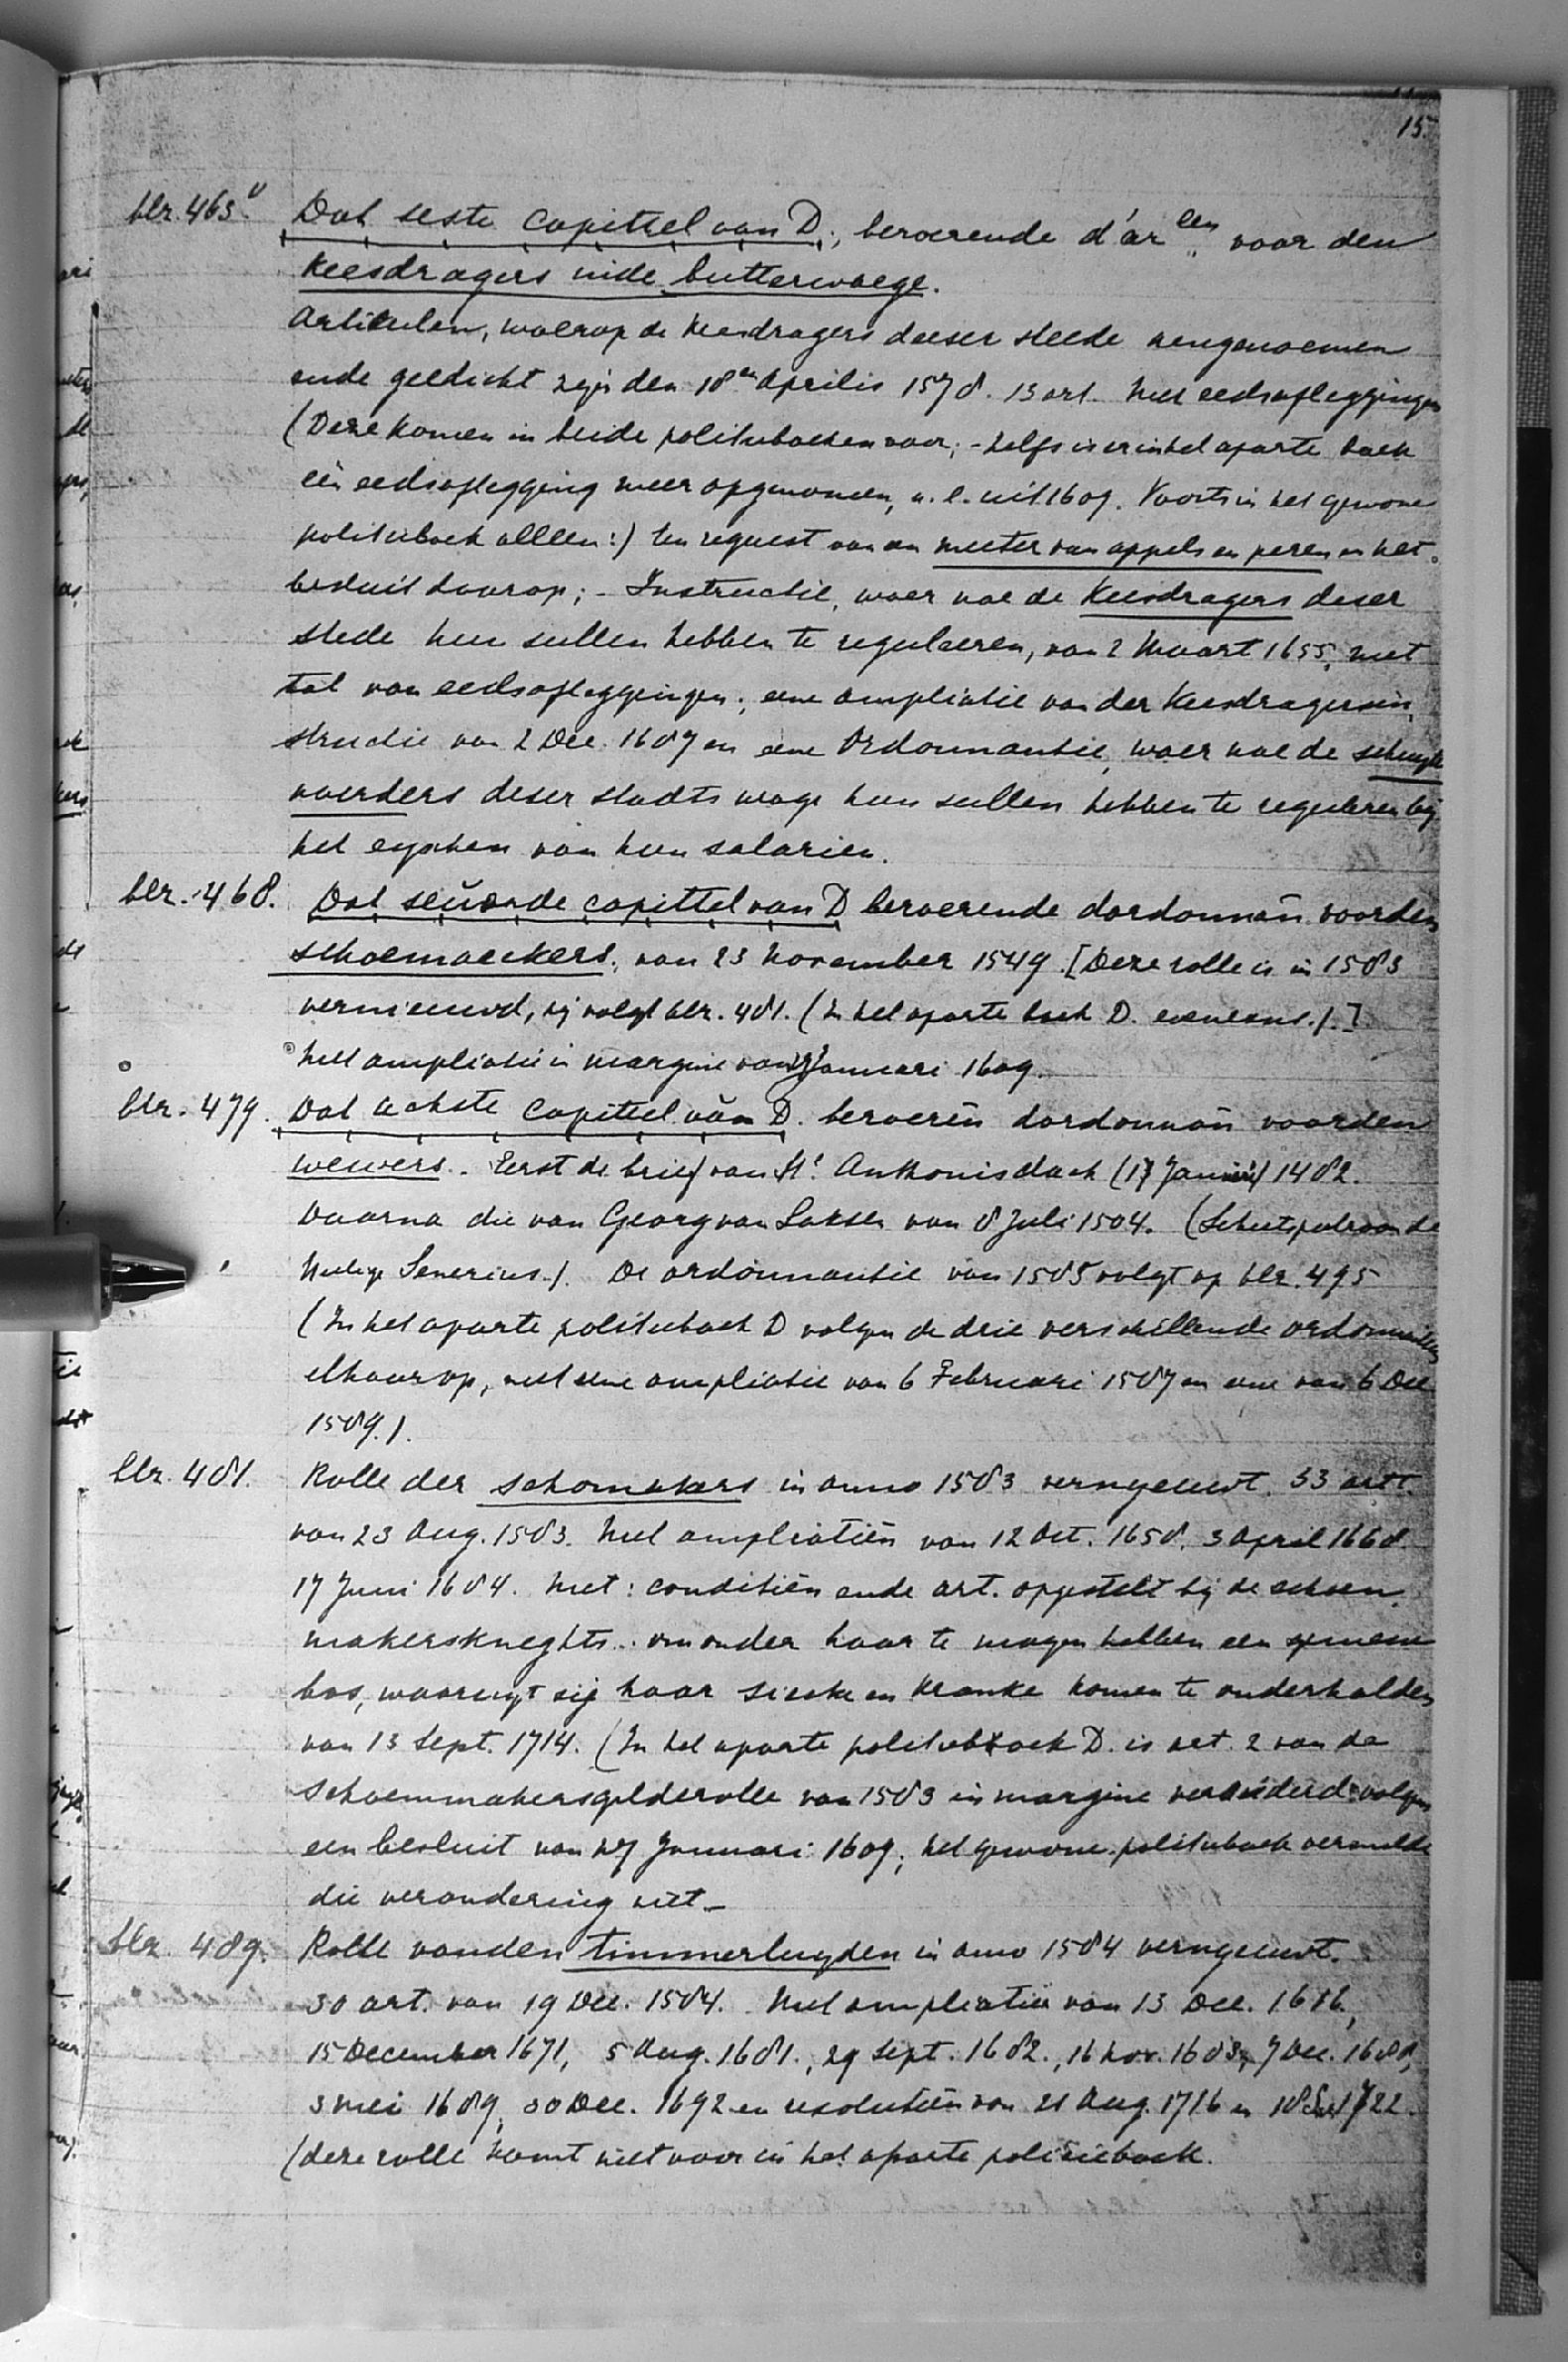 15.
blz. 463v Dat seste capittel van D., beroerende d'ar len voor den
keesdragers inde butterwaege.
Artikulen, waerop de keesdragers deeser stede aengenoemen
ende geëdicht zijn den 18en Aprilis 1578. 13 art. Met eedsafleggingen
(Deze komen in beide politieboeken voor; - zelfs is er in het aparte boek
één eedsaflegging meer opgenomen, n.l. uit 1609. Voorts in het gewone
politieboek alleen:) Een request van een meeter van appels en peren en het
besluit daarop; - Instructie, waer nae de Keesdragers deser
stede hun sullen hebben te reguleeren, van 2 Maart 1655, met
tal van eedsafleggingen; eene ampliatie van der keesdragersin
structie van 2 Dec. 1687 en eene Ordonnantie, waer nae de schuyte
voerders deser stadts wage hun sullen hebben te reguleren bij
het eyschen van hun salarien.
blz. 468. Dat seuende capittel van D beroerende dordonnan voorden
schoemaeckers, van 23 November 1549. [Deze rolle is in 1583
vernieuwd, zij volgt blz. 481. (In het aparte boek D. eveneens.).]
Met ampliatie in margine van 27 Januari 1609.
blz. 479. Dat achste capittel van D. beroeren dordonnan voorden
wevers. Eerst de brief van St. Anthonisdach (17 Januari) 1482.
Daarna die van Georg van Saksen van 8 Juli 1504. (Schutspatroon de
Heilige Severius.). De ordonnantie van 1585 volgt op blz. 495
(In het aparte politieboek D volgen de drie verschillende ordonnantiën
elkaar op, met eene ampliatie van 6 Februari 1587 en eene van 6 Dec
1589.).
blz. 481. Rolle der schomakers in anno 1583 vernyeuwt. 33 artt.
van 23 Aug. 1583. Met ampliatiën van 12 Oct. 1658. 3 April 1668.
17 Juni 1684. Met: conditiën ende art. opgestelt bij de schoen
makersknegts.. om onder haar te mogen hebben een gemeene
bos, waaruyt sij haar siecke en kranke komen te onderhalden
van 13 Sept. 1714. (In het aparte politieboek D. is art. 2 van de
schoenmakersgilderolle van 1583 in margine veranderd volgens
een besluit van 27 Januari 1609; het gewone politieboek vermeldt
die verandering niet.-
blz. 489. Rolle vanden timmerluyden in anno 1584 vernyeuwt.
30 art. van 19 Dec. 1584. Met ampliatiën van 13 Dec. 1616,
15 December 1671, 5 Aug. 1681., 29 Sept. 1682., 16 Nov. 1683, 7 Dec. 1688,
3 Mei 1689, 30 Dec. 1692 en resolutiën van 21 Aug. 1716 en 1722.
(deze rolle komt niet voor in het aparte politieboek.